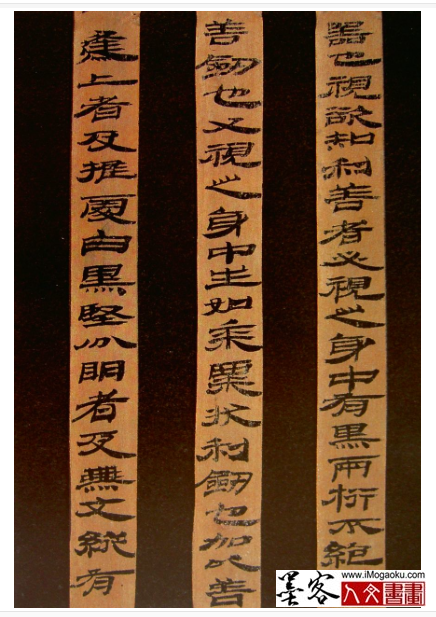 器也視欲知利善者必視之身中有黑兩桁不絕
善劍也又視之身中生如黍粟狀利劍也加以善
逢上者及推處白黑堅分明者及無文縱有
墨客
www.iMogaoku.com
人文書畫